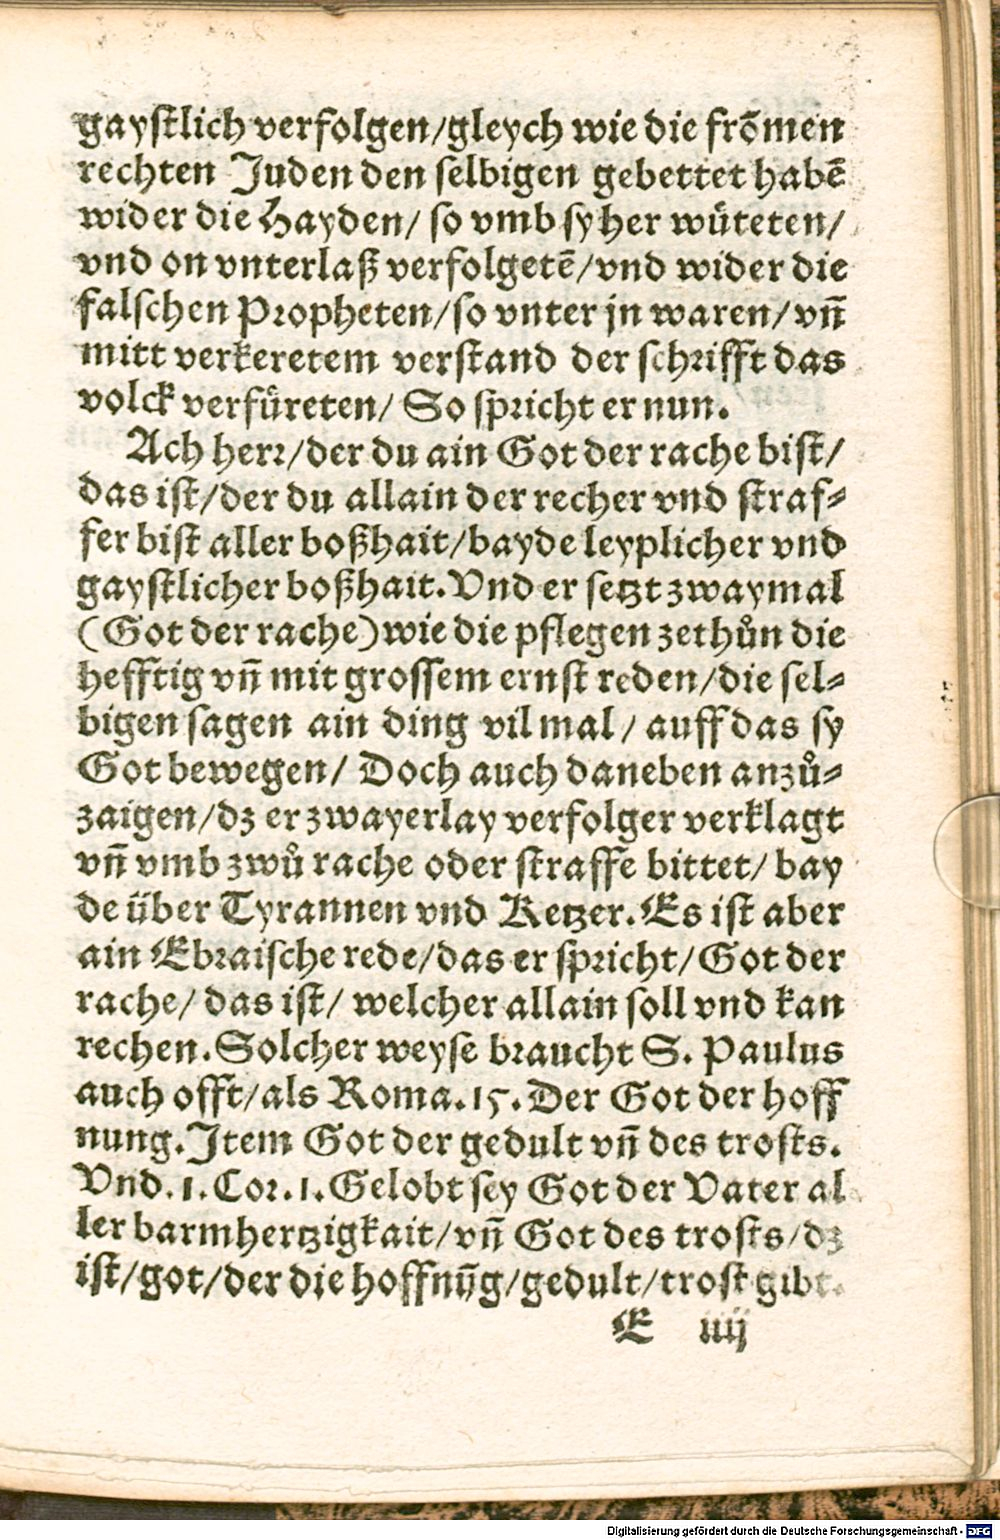 gaystlich verfolgen/gleych wie die frõmen
rechten Juden den selbigen gebettet habẽ
wider die Hayden/ so vmb sy her wuͤteten/
vnd on vnterlaß verfolgetẽ/vnd wider die
falschen Propheten/so vnter jn waren/vñ
mitt verkeretem verstand der schrifft das
volck verfuͤreten/ So spricht er nun.
Ach herr/der du ain Got der rache bist/
das ist/der du allain der recher vnd straf-
fer bist aller boßhait/bayde leyplicher vnd
gaystlicher boßhait. Vnd er setzt zwaymal
(Got der rache) wie die pflegen zethůn die
hefftig vñ mit grossem ernst reden/die sel-
bigen sagen ain ding vil mal/ auff das sy
Got bewegen/ Doch auch daneben anzů-
zaigen/dz er zwayerlay verfolger verklagt
vñ vmb zwů rache oder straffe bittet/ bay
de über Tyrannen vnd Ketzer. Es ist aber
ain Ebraische rede/das er spricht/Got der
rache/ das ist/ welcher allain soll vnd kan
rechen. Solcher weyse braucht S. Paulus
auch offt/als Roma. 15. Der Got der hoff
nung. Item Got der gedult vñ des trosts.
Vnd. 1. Cor. 1. Gelobt sey Got der Vater al
ler barmhertzigkait/vñ Got des trosts/dz
ist/got/der die hoffnũg/gedult/trost gibt.
E iiij
Digitalisierung gefördert durch die Deutsche Forschungsgemeinschaft - DFG